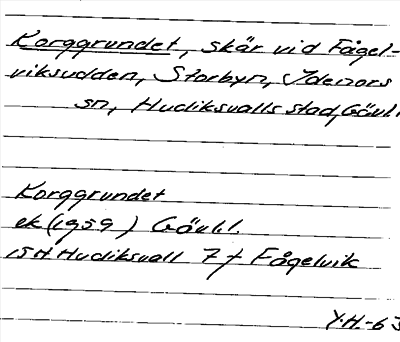 Korggrundet, skär vid Fågel-
viksudden, Storbyn, Idenors
sn, Hudiksvalls stad, Gävl.
Korggrundet
ek (1959) Gävl.
15H Hudiksvall 7f Fågelvik
Y.H.-63